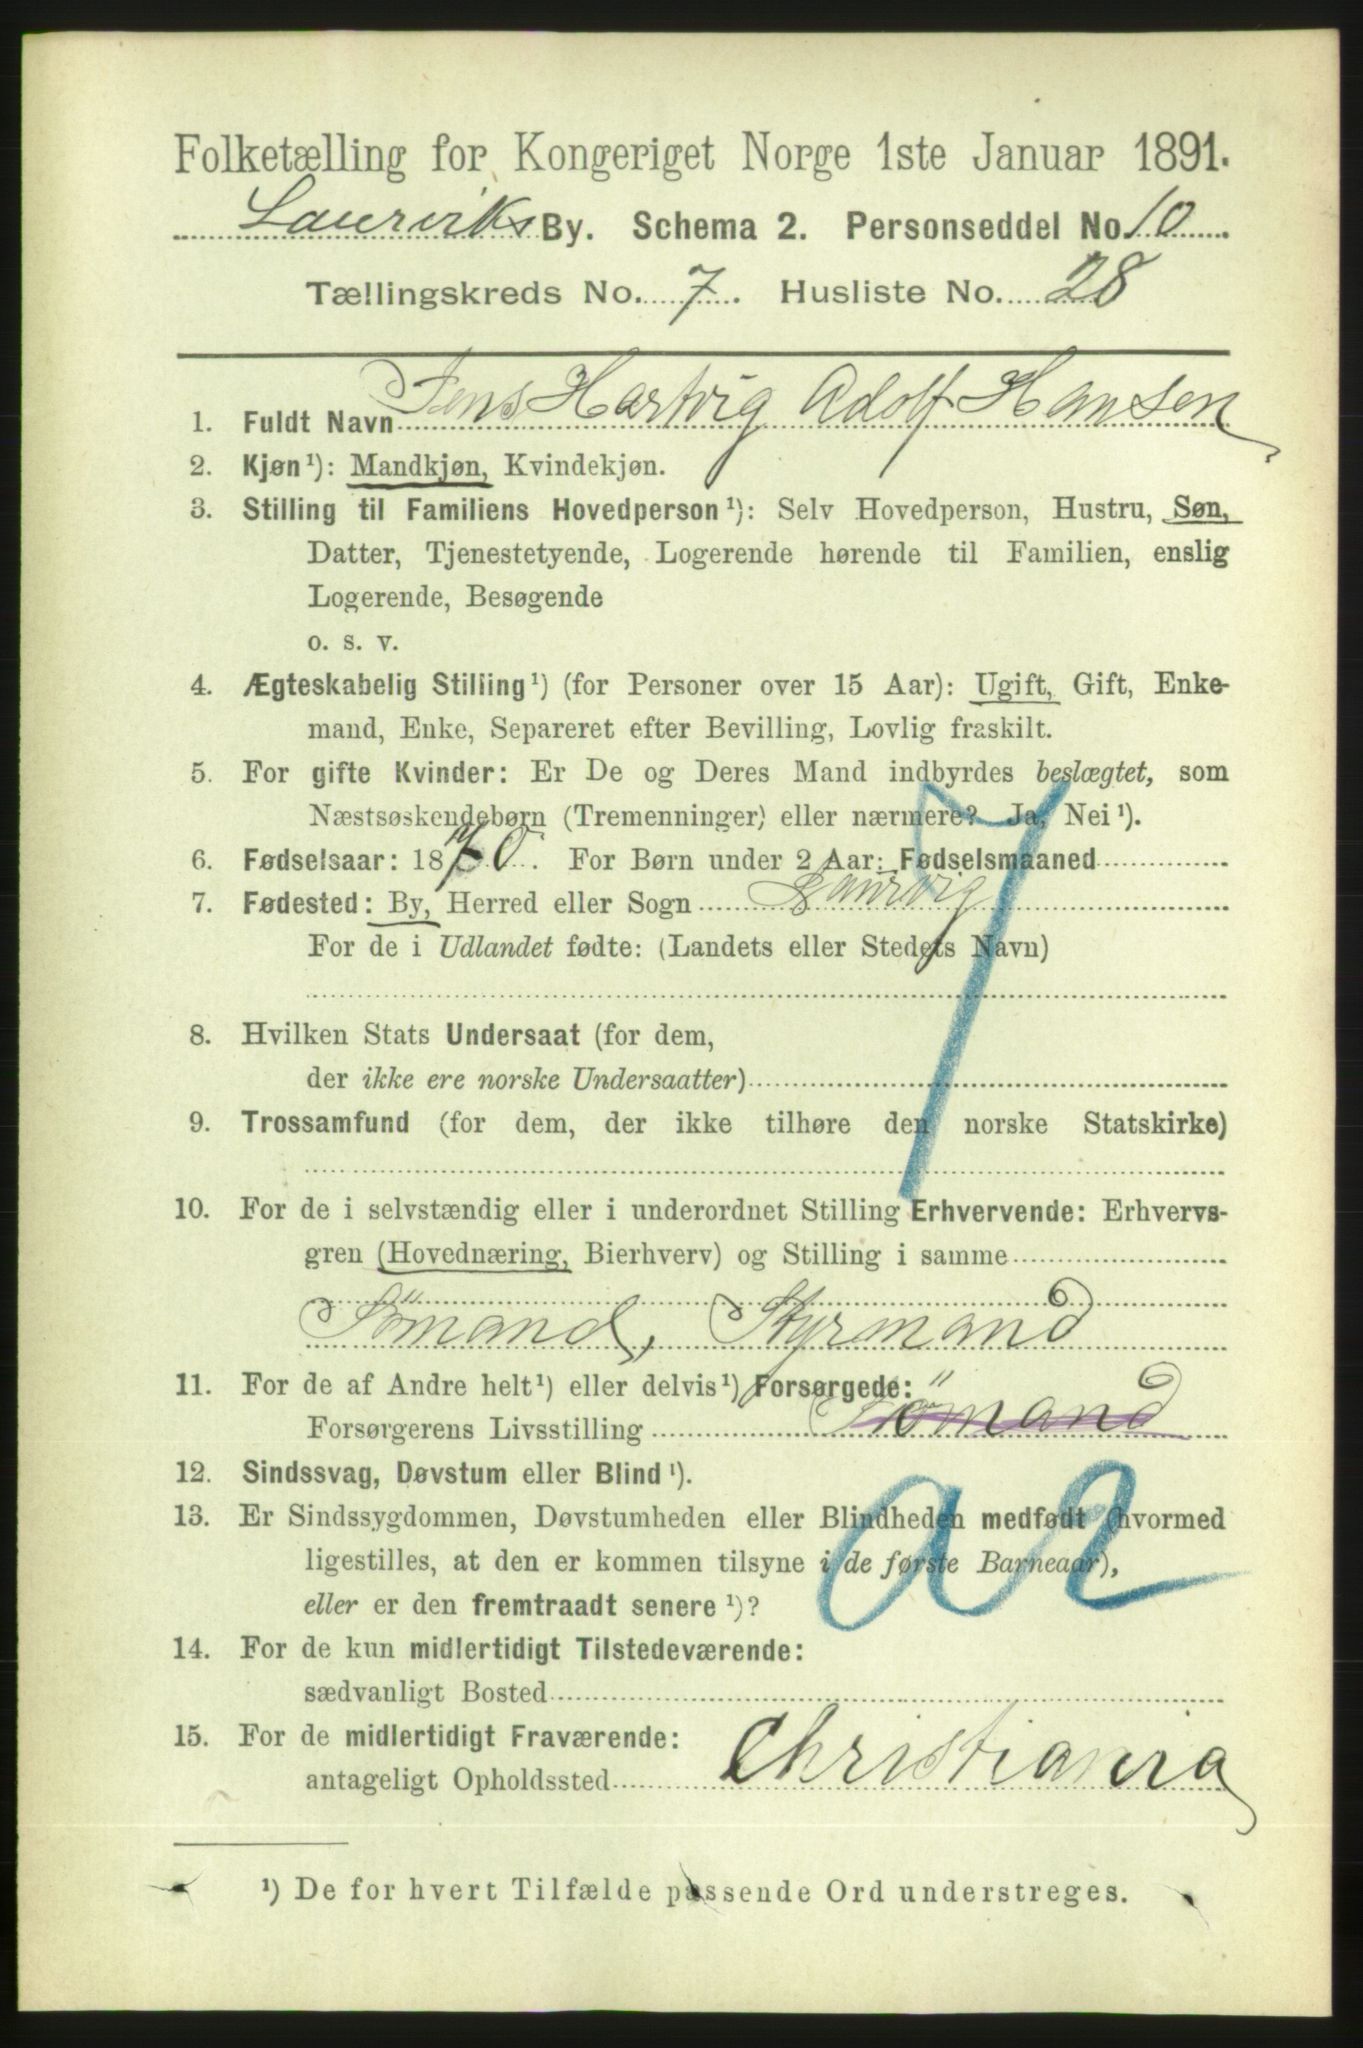 Folketælling for Kongeriget Norge 1ste Januar 1891.
Laurviks By. Schema 2. Personseddel No. 10
Tællingskreds No. 7. Husliste No. 28
1. Fuldt Navn Jens Hartvig Adolf Hansen
2. Kjøn¹): Mandkjøn, Kvindekjøn.
3. Stilling til Familiens Hovedperson¹): Selv Hovedperson, Hustru, Søn,
Datter, Tjenestetyende, Logerende hørende til Familien, enslig
Logerende, Besøgende
o. s. v.
4. Ægteskabelig Stilling¹) (for Personer over 15 Aar): Ugift, Gift, Enke-
mand, Enke, Separeret efter Bevilling, Lovlig fraskilt.
5. For gifte Kvinder: Er De og Deres Mand indbyrdes beslægtet, som
Næstsøskendebørn (Tremenninger) eller nærmere? Ja, Nei¹).
6. Fødselsaar: 1870. For Børn under 2 Aar: Fødselsmaaned
7. Fødested: By, Herred eller Sogn Laurvig
For de i Udlandet fødte: (Landets eller Stedets Navn)
8. Hvilken Stats Undersaat (for dem,
der ikke ere norske Undersaatter)
9. Trossamfund (for dem, der ikke tilhøre den norske Statskirke)
10. For de i selvstændig eller i underordnet Stilling Erhvervende: Erhvervs-
gren (Hovednæring, Bierhverv) og Stilling i samme
Sömand, Styrmand
11. For de af Andre helt¹) eller delvis¹) Forsørgede:
Forsørgerens Livsstilling Sömand
12. Sindssvag, Døvstum eller Blind¹).
13. Er Sindssygdommen, Døvstumheden eller Blindheden medfødt (hvormed
ligestilles, at den er kommen tilsyne i de første Barneaar),
eller er den fremtraadt senere¹)?
14. For de kun midlertidigt Tilstedeværende:
sædvanligt Bosted
15. For de midlertidigt Fraværende:
antageligt Opholdssted Christiania
¹) De for hvert Tilfælde passende Ord understreges.